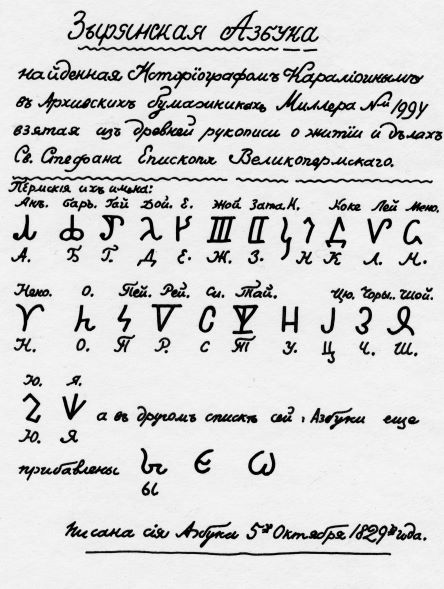 Зырянская Азбука
найденная Исторіографомъ Карамзинымъ
въ Архивскихъ бумажникахъ Миллера №й 199ч
взятая изъ древней рукописи о житіи и дѣлахъ
Св. Стефана Епископа Великопермскаго.
Пермскія ихъ имена:
Анъ. Барь. Гай Дой. Е. Жой. Зата. И. Коке Лей Мено.
А. Б. Г. Д. Е. Ж. З. И К. Л. М.
Нено. О. Пей. Рей. Си. Тай. Цю. Чоры. Шой.
Н. О. П Р. С Т. У. Ц Ч. Ш.
Ю. Я.
Ю. Я
а въ другомъ спискѣ сей Азбуки еще
прибавлены
Ы
Писана сія Азбука 5го Октября 1829го года.